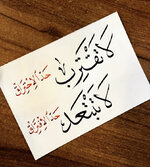 لا تقترب حد الاحتراق
لا تبتعد حد الافتراق